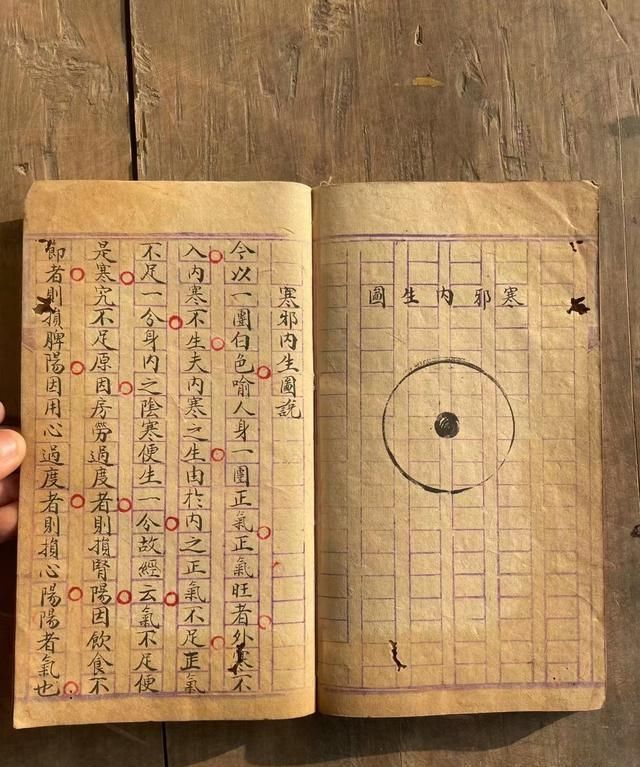 寒邪内生圖
寒邪内生圖說
今以一團白色喻人身一團正氣正氣旺者外寒不
入内寒不生夫内寒之生由於内之正氣不足正氣
不足一分身内之陰寒便生一分故經云氣不足便
是寒究不足原因房勞過度者則損腎陽因飲食不
節者則損脾陽因用心過度者則損心陽陽者氣也